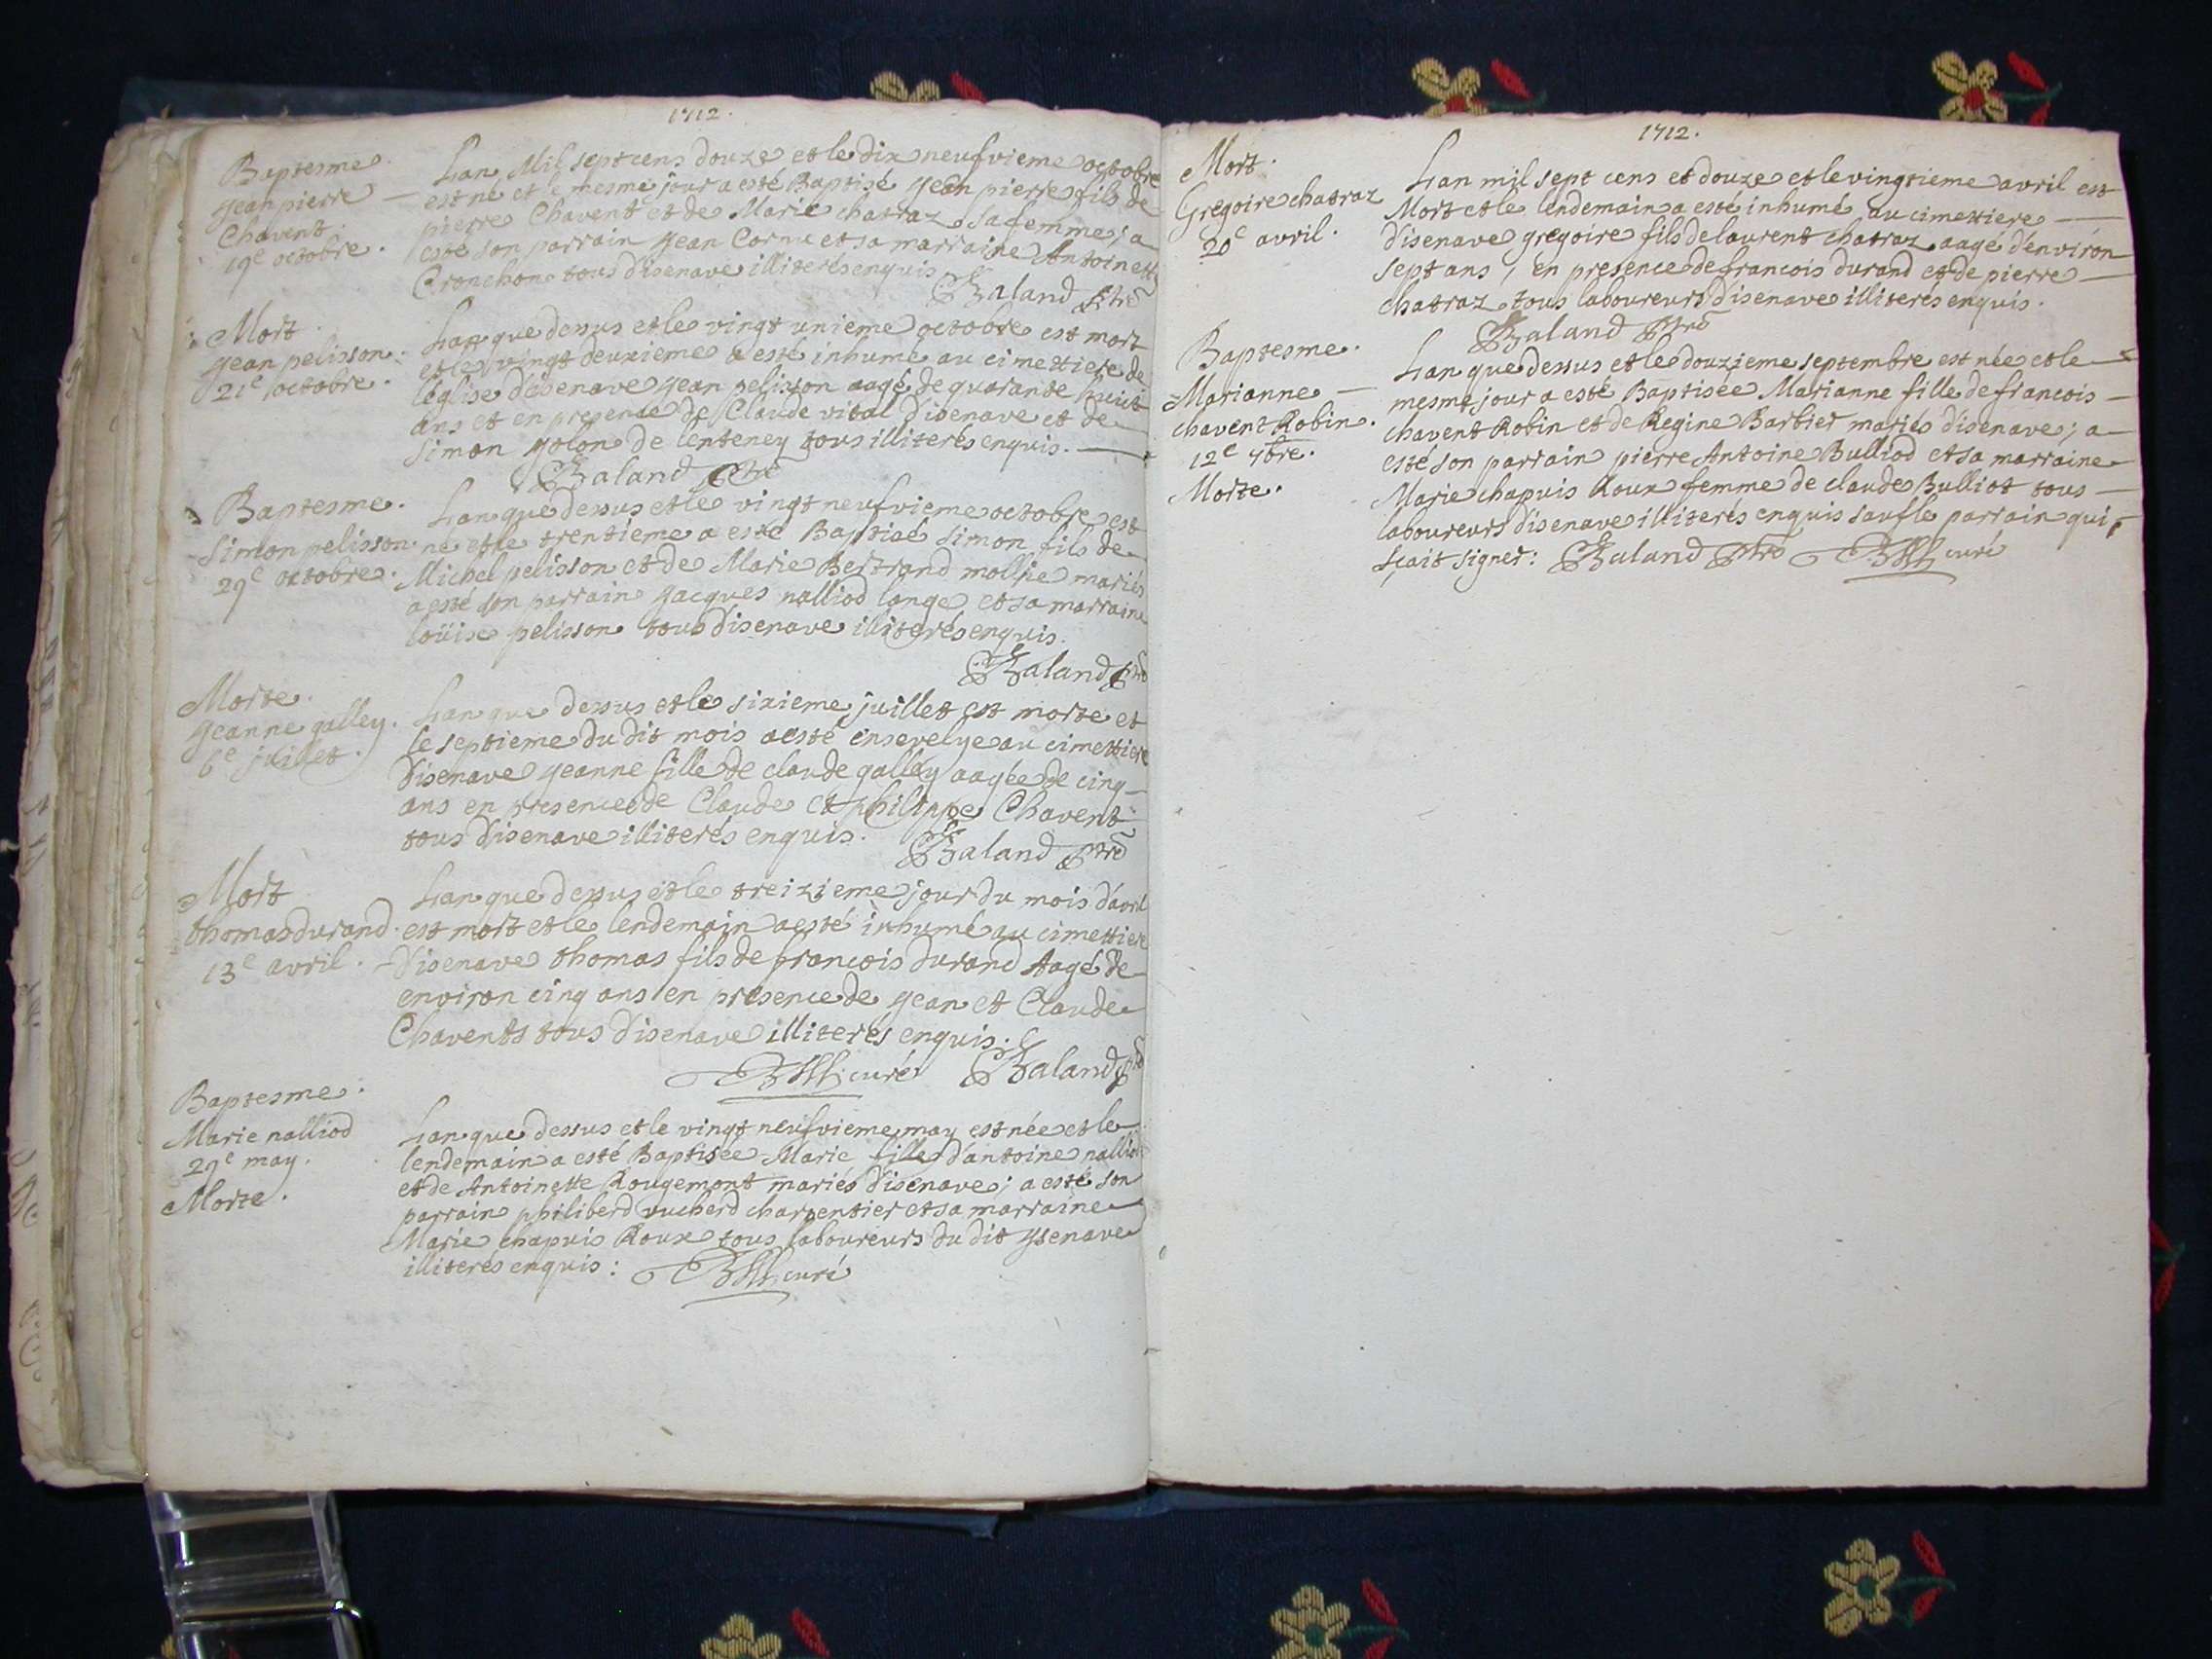 1712.
Baptesme.
Jean pierre
Chavent.
19e octobre.
Lan Mil sept cens douze et le dix neufvieme octobre
est né et le mesme jour a esté Baptisé Jean pierre fils de
pierre Chavent et de Marie chatraz sa femme; a
esté son parrain Jean Cornu et sa marraine Antoinette
Cronchon tous disenave illiterés enquis
Baland ptre
Mort.
Jean pelisson.
21e octobre.
Lan que dessus et le vingt unieme octobre est mort
et le vingt deuxieme a esté inhumé au cimettiere de
léglise disenave Jean pelisson aagé de quarante huict
ans et en presence de Claude vital disenave et de
Simon golon de lenteney tous illiterés enquis.
Baland ptre
Baptesme.
Simon pelisson.
29e octobre.
Lan que dessus et le vingt neufvieme octobre est
né et le trentieme a esté Baptisé Simon fils de
Michel pelisson et de Marie Bertrand mollie mariés
a esté son parrain Jacques nalliod lange et sa marraine
loüise pelisson tous disenave illiterés enquis.
Baland ptre
Morte.
Jeanne galley.
6e juillet.
Lan que dessus et le sixieme juillet est morte et
le septieme du dit mois a esté ensevelye au cimettiere
disenave Jeanne fille de claude galley aagée de cinq
ans en presence de Claude et philippe Chavent
tous disenave illiterés enquis.
Baland ptre
Mort
thomas durand.
13e avril.
Lan que dessus et le treizieme jour du mois d'avril
est mort et le lendemain a esté inhumé au cimettiere
disenave thomas fils de francois durand Aagé de
environ cinq ans en presence de Jean et Claude
Chavents tous disenave illiteres enquis.
curé Baland ptre
Baptesme.
Marie nalliod
29e may.
Morte.
Lan que dessus et le vingt neufvieme may est née et le
lendemain a esté Baptisée Marie fille d'antoine nalliod
et de Antoinette Rougemont mariés disenave; a esté son
parrain philiberd vucherd charpentier et sa marraine
Marie chapuis Roux tous laboureurs du dit ysenave
illiterés enquis: curé
1712.
Mort.
Gregoire chatraz
20e avril.
Lan mil sept cens et douze et le vingtieme avril est
Mort et le lendemain a esté inhumé au cimettiere
disenave gregoire fils de laurent chatraz aagé d'environ
sept ans, en presence de francois durand et de pierre
chatraz tous laboureurs disenave illiterés enquis.
Baland ptre
Baptesme.
Marianne
chavent Robin.
12e 7bre.
Morte.
Lan que dessus et le douzieme septembre est née et le
mesme jour a esté Baptisée Marianne fille de francois
chavent Robin et de Regine Barbier mariés disenave; a
esté son parrain pierre Antoine Bulliod et sa marraine
Marie chapuis Roux femme de claude Bulliot tous
laboureurs disenave illiterés enquis sauf le parrain qui
sçait signer: Baland ptre curé